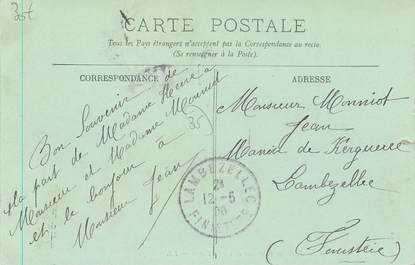 35t
CARTE POSTALE
Tous les Pays étrangers n'acceptent pas la Correspondance au recto.
(Se renseigner à la Poste).
CORRESPONDANCE
Bon Souvenir de
la part de Madame
Monsieur et Madame Monniot
et le bonjour à
Monsieur Jean
35
ADRESSE
Monsieur Monniot
Jean
Manoir de
Lambezellec
(Finistère)
LAMBEZELLEC
21
12-5
08
FINISTERE